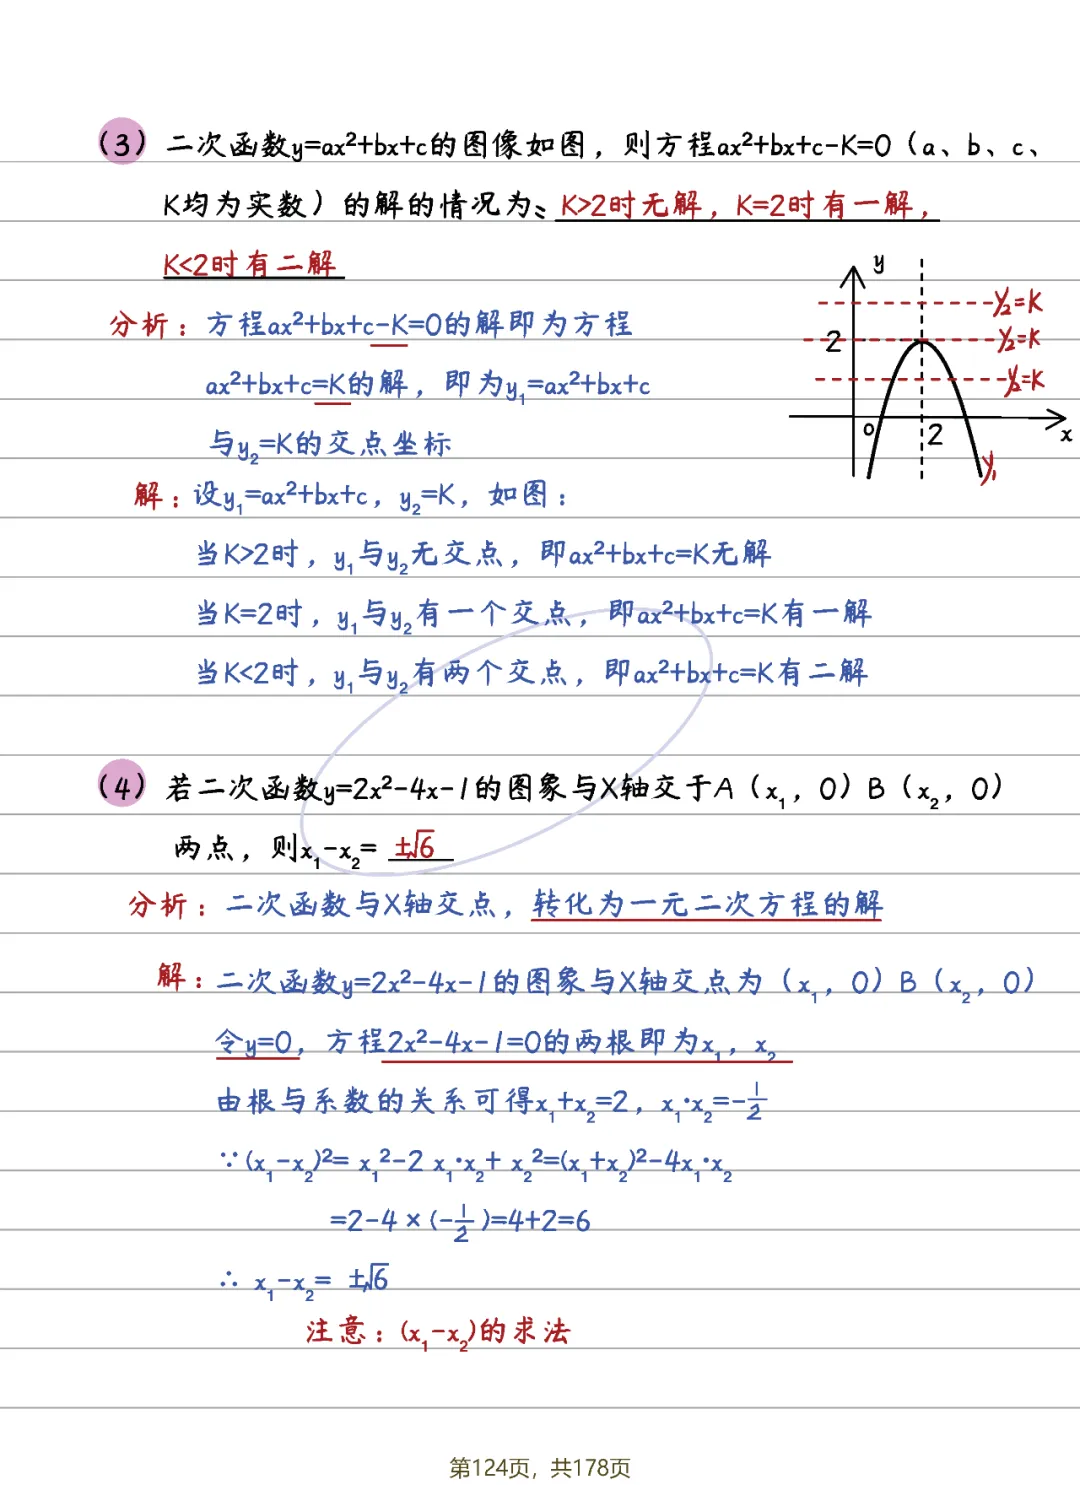 （3）二次函数y=ax²+bx+c的图像如图，则方程ax²+bx+c-K=0（a、b、c、
K均为实数）的解的情况为：K>2时无解，K=2时有一解，
K<2时有二解
分析：方程ax²+bx+c-K=0的解即为方程
ax²+bx+c=K的解，即为y₁=ax²+bx+c
与y₂=K的交点坐标
y
y₂=K
2
y₂=K
y₂=K
0
2
x
y₁
解：设y₁=ax²+bx+c，y₂=K，如图：
当K>2时，y₁与y₂无交点，即ax²+bx+c=K无解
当K=2时，y₁与y₂有一个交点，即ax²+bx+c=K有一解
当K<2时，y₁与y₂有两个交点，即ax²+bx+c=K有二解
（4）若二次函数y=2x²-4x-1的图象与X轴交于A（x₁，0）B（x₂，0）
两点，则x₁-x₂= ±√6
分析：二次函数与X轴交点，转化为一元二次方程的解
解：二次函数y=2x²-4x-1的图象与X轴交点为（x₁，0）B（x₂，0）
令y=0，方程2x²-4x-1=0的两根即为x₁，x₂
由根与系数的关系可得x₁+x₂=2，x₁·x₂=-1/2
∵(x₁-x₂)²= x₁²-2 x₁·x₂+ x₂²=(x₁+x₂)²-4x₁·x₂
=2-4×(-1/2)=4+2=6
∴ x₁-x₂= ±√6
注意：(x₁-x₂)的求法
第124页，共178页